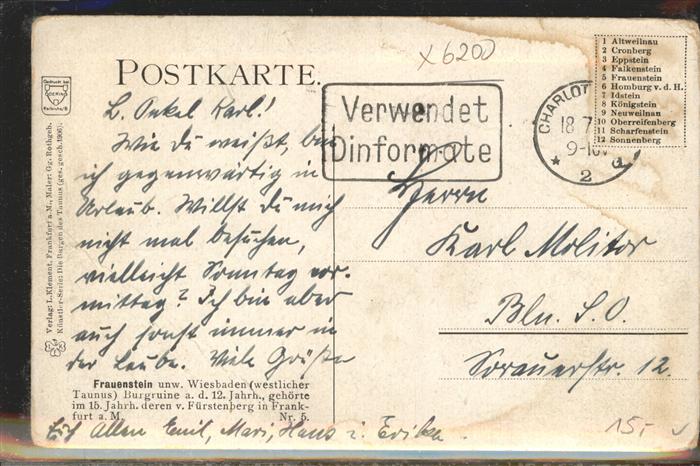 x 6200
POSTKARTE.
Verwendet
Dinformate
CHARLOT
18 7
9-10
* 2 d
1 Altweilnau
2 Cronberg
3 Eppstein
4 Falkenstein
5 Frauenstein
6 Homburg v. d. H.
7 Idstein
8 Königstein
9 Neuweilnau
10 Oberreifenberg
11 Scharfenstein
12 Sonnenberg
L. Onkel Karl!
Wie du weißt, bin
ich gegenwärtig in
Urlaub. Willst du mich
nicht mal besuchen,
vielleicht Sonntag vor-
mittag? Ich bin aber
auch sonst immer in
der Laube. Viele Grüße
Herrn
Karl Molitor
Bln. S.O.
Sorauerstr. 12.
Frauenstein unw. Wiesbaden (westlicher
Taunus) Burgruine a. d. 12. Jahrh., gehörte
im 15. Jahrh. deren v. Fürstenberg in Frank-
furt a. M. Nr. 5.
Allen Emil, Mari, Hans i. Erika
15,-
Verlag: L. Klement, Frankfurt a. M., Malerei Gg. Rothgeb.
Künstler-Serie: Die Burgen des Taunus (ges. gesch. 1906).
Gedruckt bei